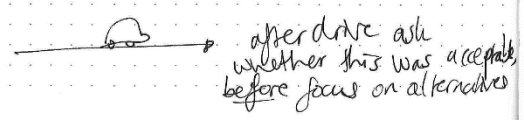 after drive ask
whether this was acceptable,
before focus on alternatives